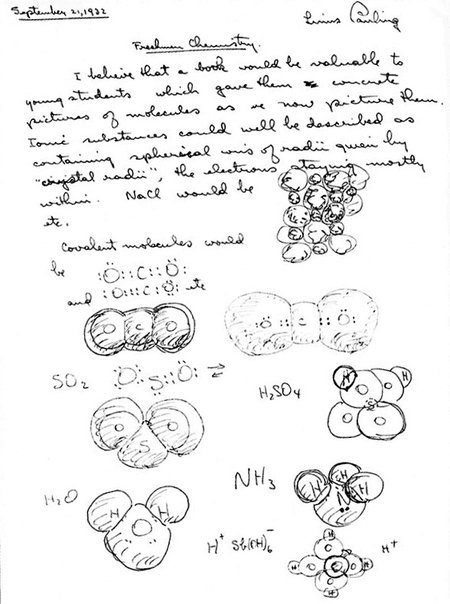 September 21, 1932
Linus Pauling
Freshman Chemistry.
I believe that a book would be valuable to
young students which gave them concrete
pictures of molecules as we now picture them.
Ionic substances could well be described as
containing spherical ions of radii given by
"crystal radii", the electrons staying mostly
within. NaCl would be
etc.
Covalent molecules would
be :Ö::C::Ö:
and :O:::C:Ö: etc
O C O
:O::C::O:
SO2 :Ö:S::Ö: ⇄
O S O
H2SO4
H H
O O
O O
H2O
H H
O
NH3
H H H
N
H+ Sb(OH)6-
H+